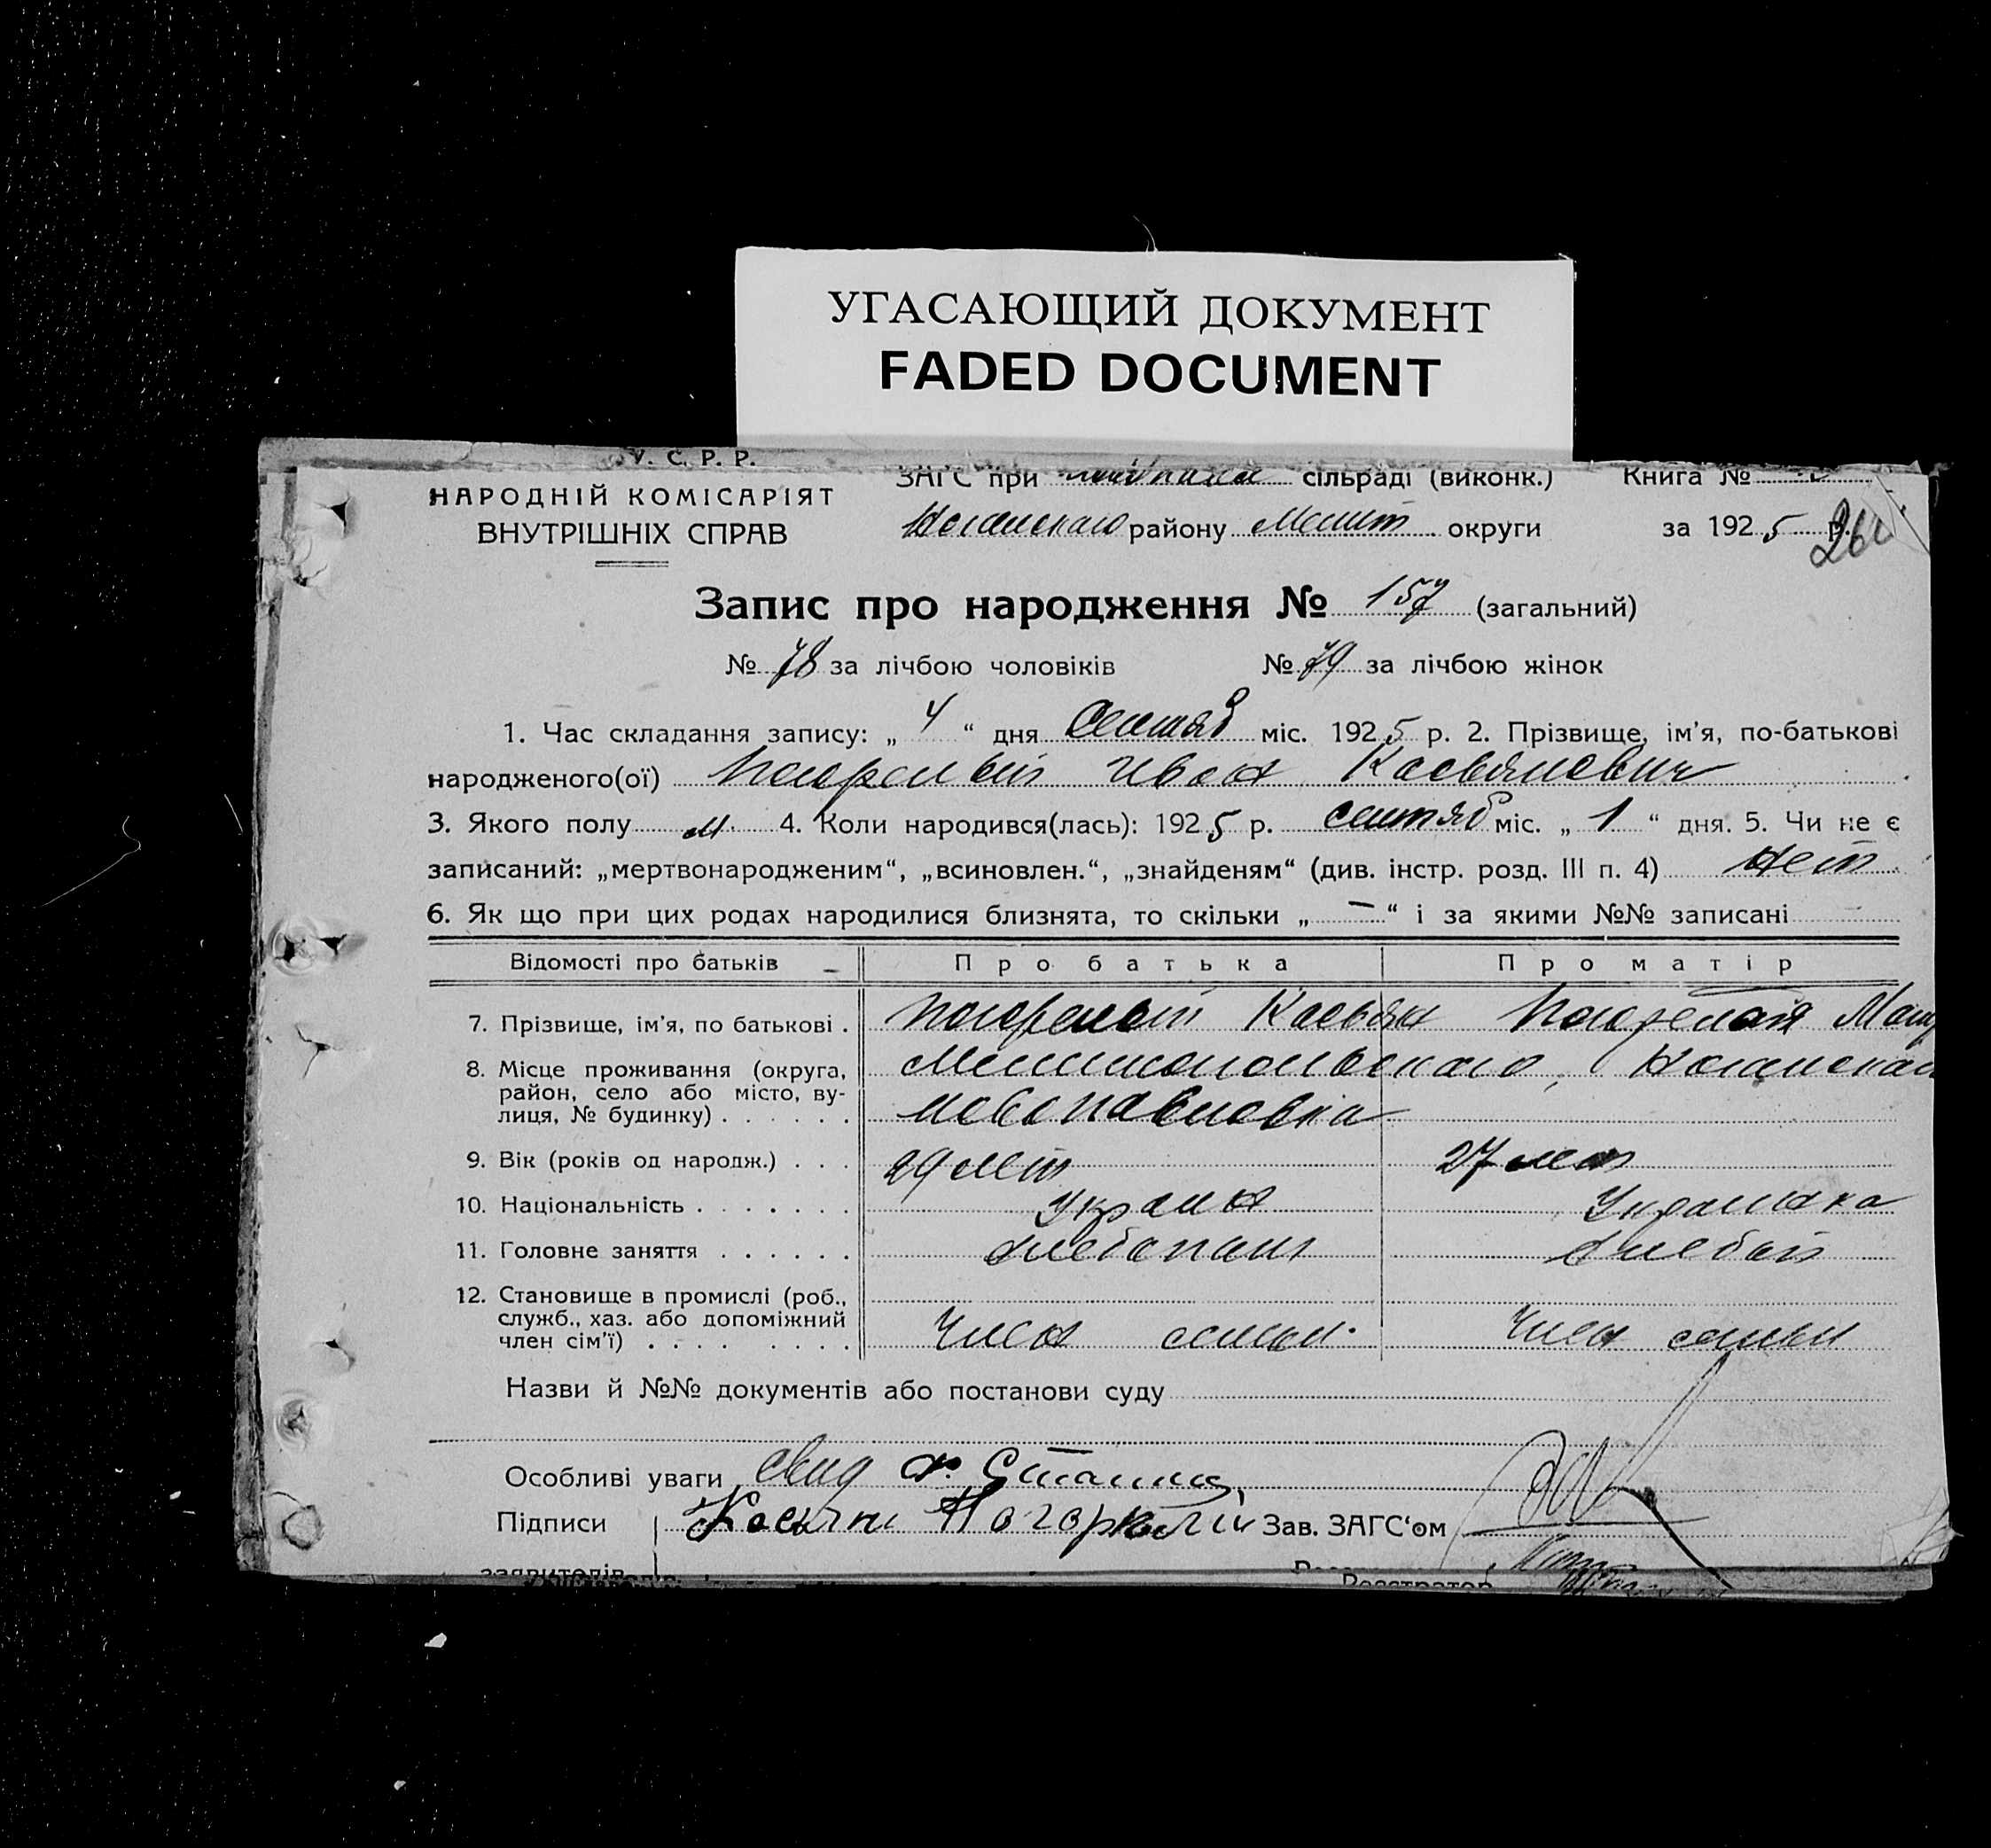 УГАСАЮЩИЙ ДОКУМЕНТ
FADED DOCUMENT
У. С. Р. Р.
НАРОДНІЙ КОМІСАРІЯТ
ВНУТРІШНІХ СПРАВ
ЗАГС при сільраді (виконк.) Книга №
району Мелит округи за 1925 р.
Запис про народження № 157 (загальний)
№ 78 за лічбою чоловіків № 79 за лічбою жінок
1. Час складання запису: „ 4 “ дня Сентяб міс. 1925 р. 2. Прізвище, ім’я, по-батькові
народженого(ої) Погорелый Иван Касьянович
3. Якого полу м. 4. Коли народився(лась): 1925 р. сентяб міс. „ 1 “ дня. 5. Чи не є
записаний: „мертвонародженим“, „всиновлен.“, „знайденям“ (див. інстр. розд. III п. 4) Нет
6. Як що при цих родах народилися близнята, то скільки „ — “ і за якими №№ записані
Відомості про батьків Про батька Про матір
7. Прізвище, ім’я, по батькові . Погорелый Касьян Погорелая
8. Місце проживання (округа, район, село або місто, вулиця, № будинку) . . . . . . Мелитопольского,
Новопавловка
9. Вік (років од народж.) . . . 29 лет 27 лет
10. Національність . . . . . . . Украин Украинка
11. Головне заняття . . . . . . Хлебопаш Хлебоп
12. Становище в промислі (роб., служб., хаз. або допоміжний член сім’ї) . . . . . . . . Член семьи. Член семьи
Назви й №№ документів або постанови суду
Особливі уваги
Підписи Касьян Погорелій Зав. ЗАГС‘ом
заявителів
Реєстратор